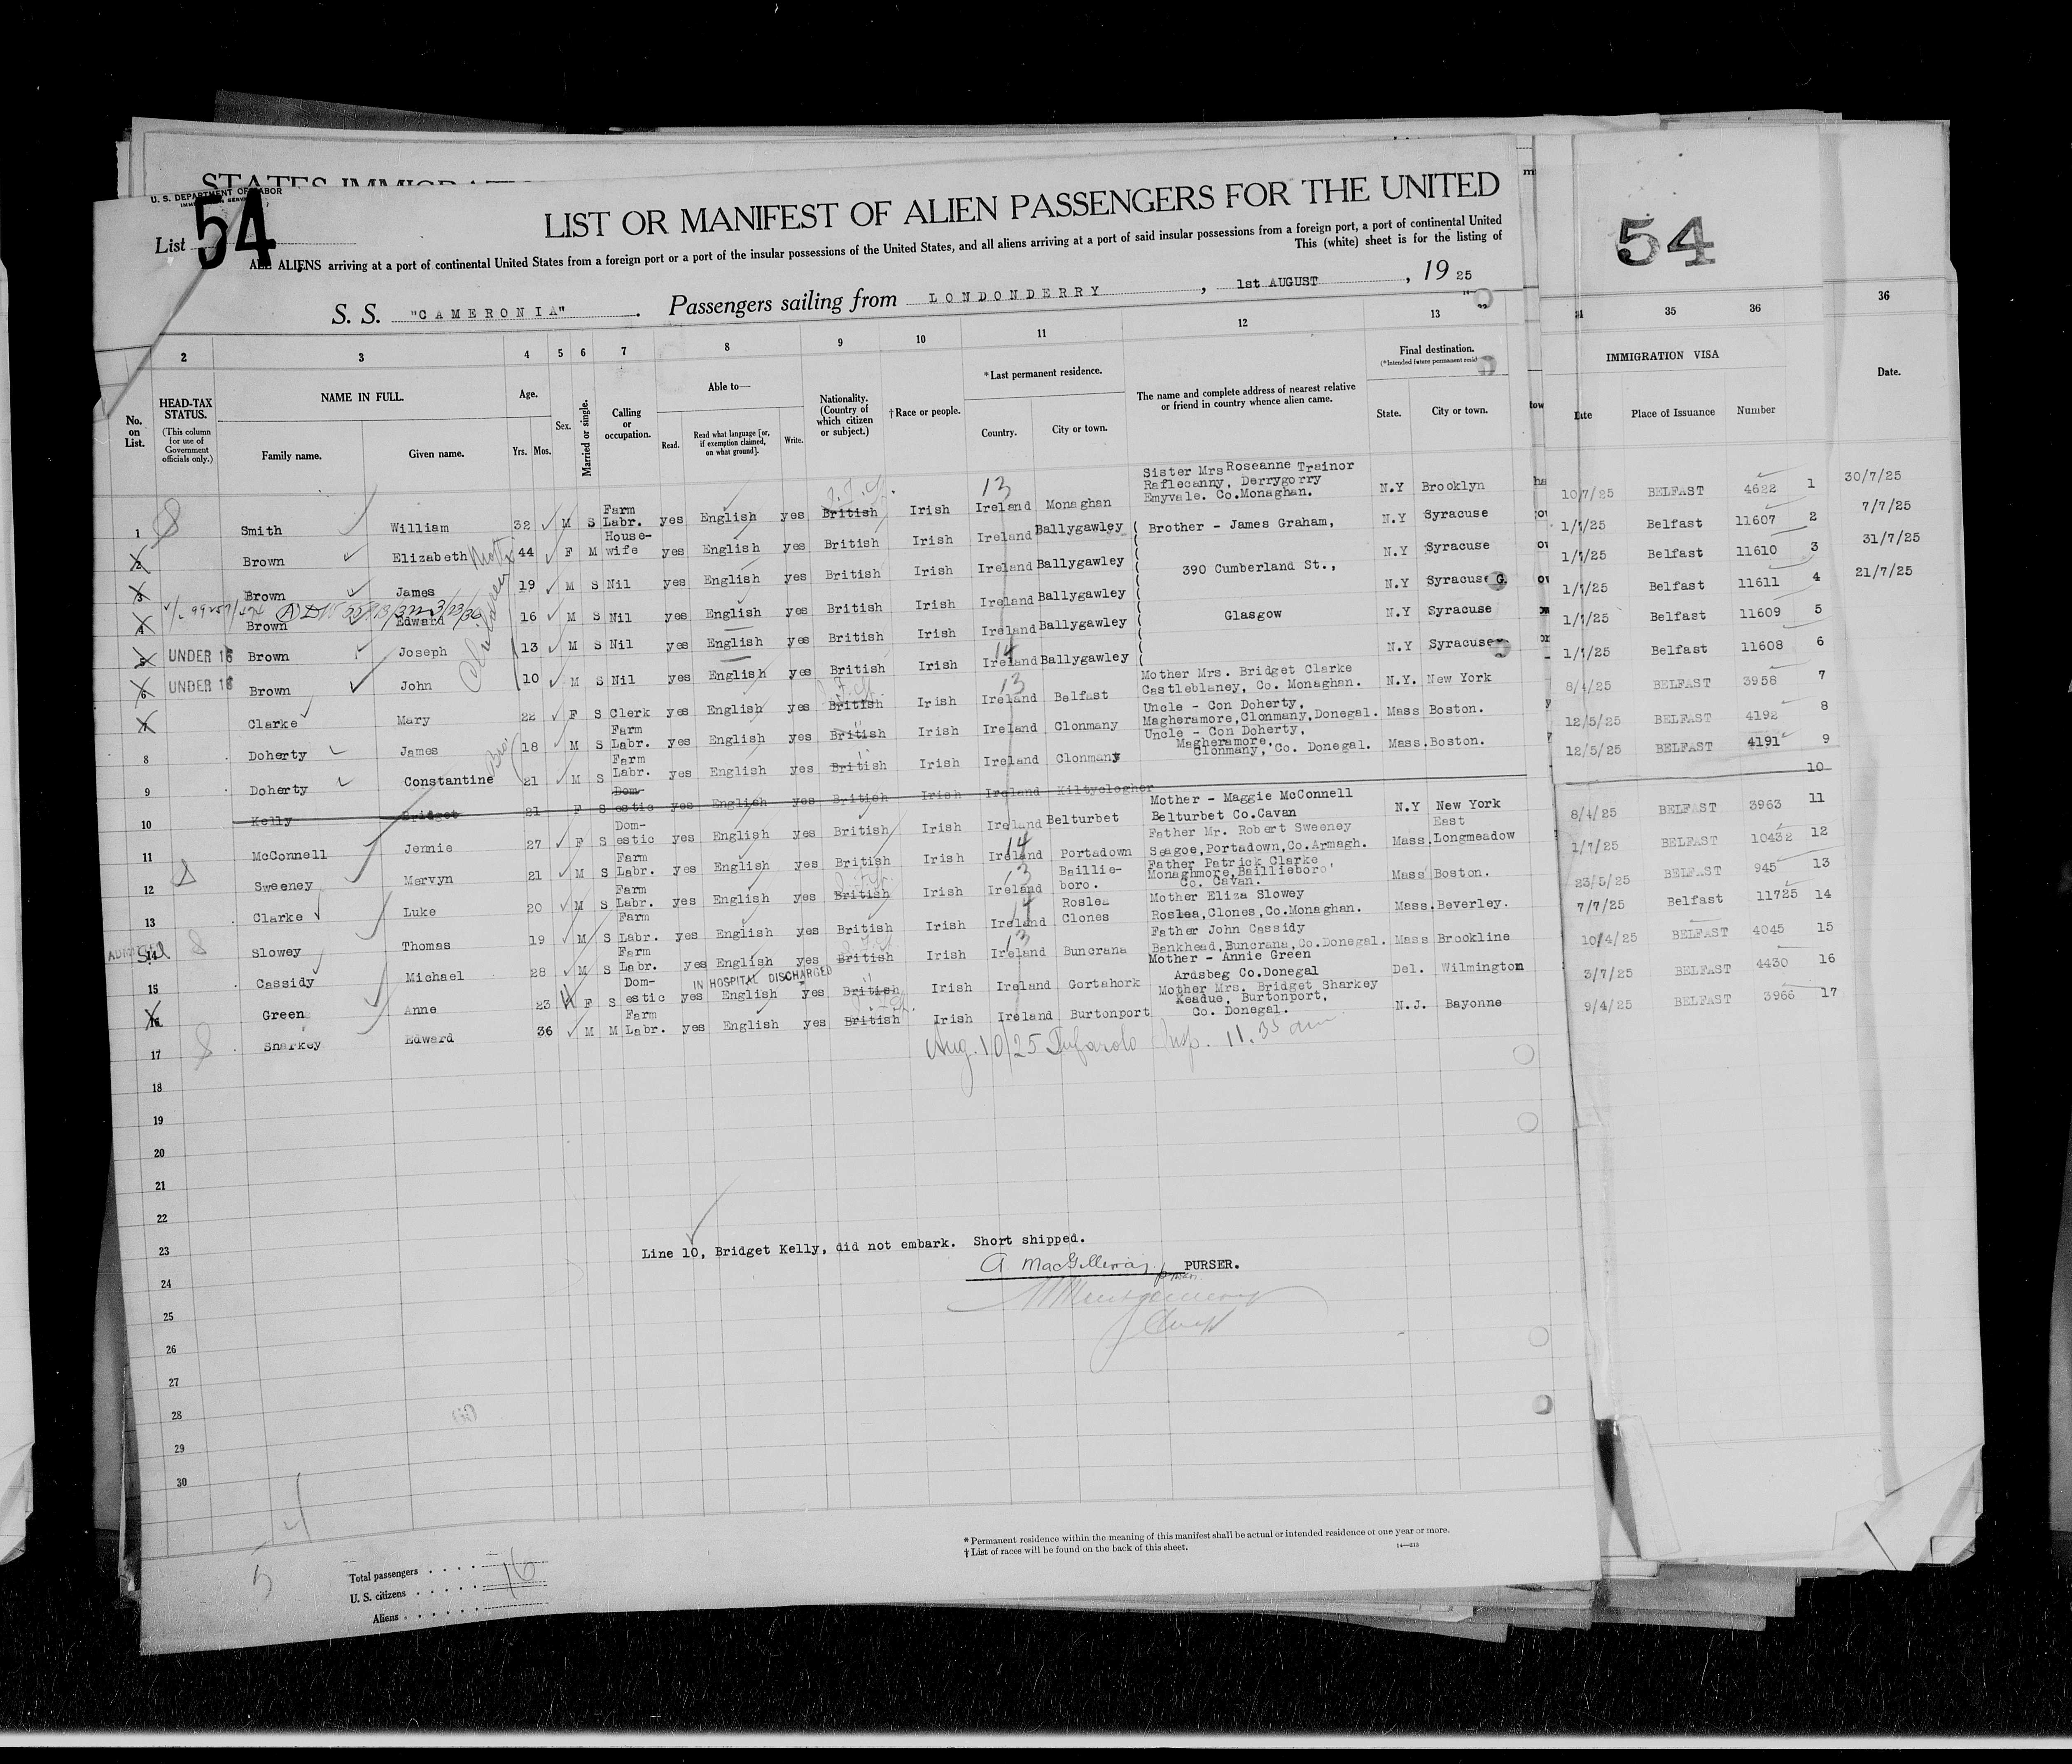 U. S. DEPARTMENT OF LABOR
List 54
LIST OR MANIFEST OF ALIEN PASSENGERS FOR THE UNITED
ALL ALIENS arriving at a port of continental United States from a foreign port or a port of the insular possessions of the United States, and all aliens arriving at a port of said insular possessions from a foreign port, a port of continental United
This (white) sheet is for the listing of
S. S. "CAMERONIA". Passengers sailing from LONDONDERRY, 1st AUGUST, 19 25
54
2 3 4 5 6 7 8 9 10 11 12 13 35 36 36
No. on List.
HEAD-TAX STATUS.
(This column for use of Government officials only.)
NAME IN FULL.
Family name. Given name.
Age.
Yrs. Mos.
Sex.
Married or single.
Calling or occupation.
Able to—
Read. Read what language [or, if exemption claimed, on what ground]. Write.
Nationality. (Country of which citizen or subject.)
†Race or people.
*Last permanent residence.
Country. City or town.
The name and complete address of nearest relative or friend in country whence alien came.
Final destination.
State. City or town.
IMMIGRATION VISA
Date Place of Issuance Number
Date.
1 Smith William 32 M S Farm Labr. yes English yes British Irish Ireland Monaghan Sister Mrs Roseanne Trainor Raflecanny, Derrygorry Emyvale. Co.Monaghan. N.Y Brooklyn 10/7/25 BELFAST 4622 1 30/7/25
2 Brown Elizabeth 44 F M House-wife yes English yes British Irish Ireland Ballygawley Brother - James Graham, N.Y Syracuse 1/7/25 Belfast 11607 2 7/7/25
3 Brown James 19 M S Nil yes English yes British Irish Ireland Ballygawley 390 Cumberland St., N.Y Syracuse 1/7/25 Belfast 11610 3 31/7/25
4 Brown Edward 16 M S Nil yes English yes British Irish Ireland Ballygawley N.Y Syracuse 1/7/25 Belfast 11611 4 21/7/25
5 UNDER 16 Brown Joseph 13 M S Nil yes English yes British Irish Ireland Ballygawley Glasgow N.Y Syracuse 1/7/25 Belfast 11609 5
6 UNDER 16 Brown John 10 M S Nil yes English yes British Irish Ireland Ballygawley N.Y Syracuse 1/7/25 Belfast 11608 6
7 Clarke Mary 22 F S Clerk yes English yes British Irish Ireland Belfast Mother Mrs. Bridget Clarke Castleblaney, Co. Monaghan. N.Y. New York 8/4/25 BELFAST 3958 7
8 Doherty James 18 M S Farm Labr. yes English yes British Irish Ireland Clonmany Uncle - Con Doherty, Magheramore, Clonmany, Donegal. Mass Boston. 12/5/25 BELFAST 4192 8
9 Doherty Constantine 21 M S Farm Labr. yes English yes British Irish Ireland Clonmany Uncle - Con Doherty, Magheramore, Clonmany, Co. Donegal. Mass. Boston. 12/5/25 BELFAST 4191 9
10 Kelly Bridget 21 F S Dom-estic yes English yes British Irish Ireland Kiltyclogher 10
11 McConnell Jennie 27 F S Dom-estic yes English yes British Irish Ireland Belturbet Mother - Maggie McConnell Belturbet Co.Cavan N.Y New York 8/4/25 BELFAST 3963 11
12 Sweeney Mervyn 21 M S Farm Labr. yes English yes British Irish Ireland Portadown Father Mr. Robert Sweeney Seagoe, Portadown, Co. Armagh. Mass. East Longmeadow 1/7/25 BELFAST 10432 12
13 Clarke Luke 20 M S Farm Labr. yes English yes British Irish Ireland Baillie-boro. Father Patrick Clarke, Monaghmore, Baillieboro Co. Cavan. Mass Boston. 23/5/25 BELFAST 945 13
ADMITTED
14 Slowey Thomas 19 M S Farm Labr. yes English yes British Irish Ireland Roslea Clones Mother Eliza Slowey Roslea, Clones, Co.Monaghan. Mass. Beverley. 7/7/25 Belfast 11725 14
15 Cassidy Michael 28 M S Farm Labr. yes English yes British Irish Ireland Buncrana Father John Cassidy Bankhead, Buncrana, Co. Donegal. Mass Brookline 10/4/25 BELFAST 4045 15
IN HOSPITAL DISCHARGED
16 Green Anne 23 F S Dom-estic yes English yes British Irish Ireland Gortahork Mother - Annie Green Ardsbeg Co.Donegal Del. Wilmington 3/7/25 BELFAST 4430 16
17 Sharkey Edward 36 M M Farm Labr. yes English yes British Irish Ireland Burtonport Mother Mrs. Bridget Sharkey Keadue, Burtonport, Co. Donegal. N.J. Bayonne 9/4/25 BELFAST 3966 17
18
19
20
21
22
23
24
25
26
27
28
29
30
Line 10, Bridget Kelly, did not embark. Short shipped.
PURSER.
Total passengers 16
U. S. citizens
Aliens
*Permanent residence within the meaning of this manifest shall be actual or intended residence of one year or more.
†List of races will be found on the back of this sheet.
14—213